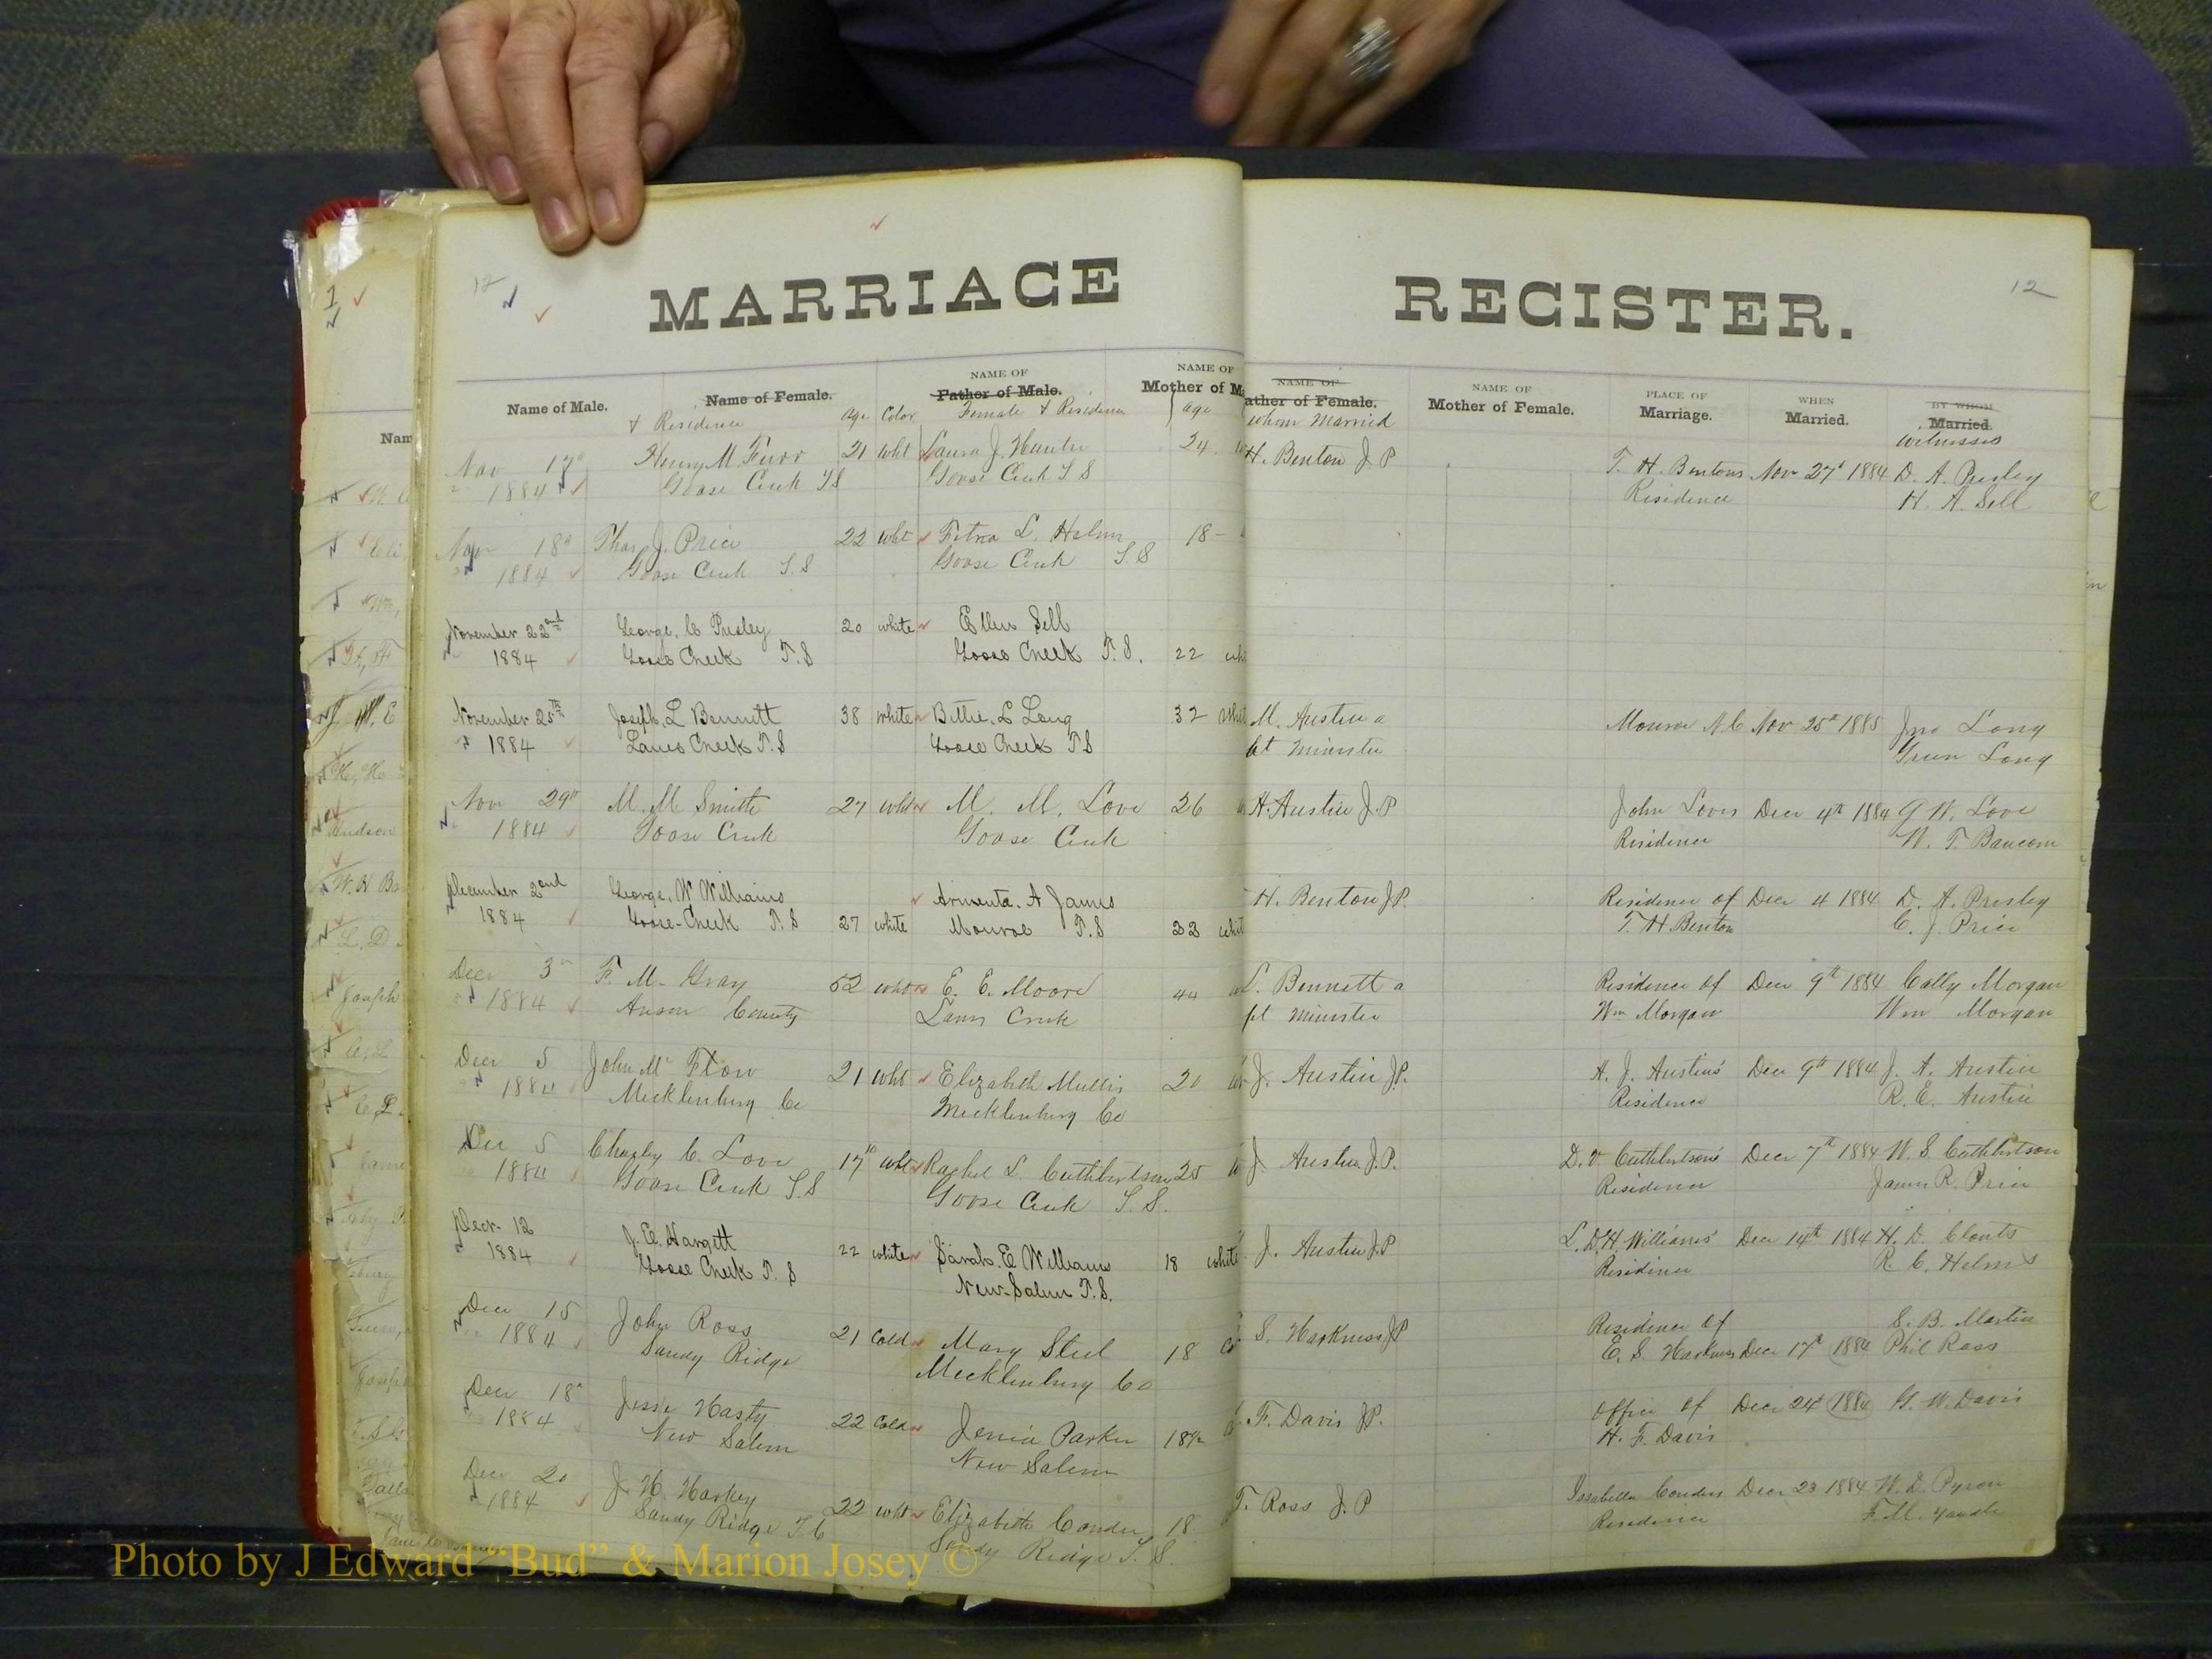 MARRIAGE REGISTER.
12
12
Name of Male.
Name of Female.
& Residence
Age
Color
NAME OF
Father of Male.
Female & Residence
NAME OF
Mother of M
age
NAME OF
ather of Female.
whom Married
NAME OF
Mother of Female.
PLACE OF
Marriage.
WHEN
Married.
BY WHOM
Married.
Witnesses
Nov 17 Henry M. Furr 21 wht Laura J. Hunter 24 H. Benton J P T. H. Bentons Nov 27 1884 D. A. Presley
1884 Goose Creek T S Goose Creek T S Residence H. A. Sell
Nov 18 Thos J. Price 22 wht L. Helms 18
1884 Goose Creek T. S Goose Creek T. S
November 22nd George. C Presley 20 white Ellen Sell
1884 Goose Creek T. S Goose Creek T. S. 22 whi
November 25th Joseph. L Bennett 38 white Bettie. L Long 32 whit M. Austin a Monroe N.C Nov 25th 1885 Jno Long
1884 Lanes Creek T. S Goose Creek T S Bt Minister Green Long
Nov 29th M. M. Smith 27 wht M. M. Love 26 H. Austin J. P John Loves Decr 4th 1884 G W. Love
1884 Goose Creek Goose Creek Residence W. T. Baucom
December 2nd George. W Williams Armenta. A James H. Benton J P. Residence of Decr 4 1884 D. A. Presley
1884 Goose-Creek T. S 27 white Monroe T. S 23 whit T. H. Benton C. J. Price
Decr 3 F. M. Gray 52 wht E. E. Moore 44 L. Bennett a Residence of Decr 9th 1884 Cally Morgan
1884 Anson County Lanes Creek pt Minister Wm Morgan Wm Morgan
Decr 5 John M Flow 21 wht Elizabeth Mullis 20 J. Austin J P. A. J. Austin's Decr 9th 1884 J. A. Austin
1884 Mecklenburg Co Mecklenburg Co Residence R. E. Austin
Dec 5 Charley C. Love 17 wht Rachel L. Cuthbertson 25 J. Austin J. P. D. V. Cuthbertson's Decr 7th 1884 W. S. Cuthbertson
1884 Goose Creek T. S Goose Creek T. S. Residence James R. Price
Decr. 12 J. E. Hargett 22 white Sarah. E Williams 18 white J. Austin J. P L. D. H. Williams' Decr 14th 1884 H. D. Clonts
1884 Goose Creek T. S New-Salem T. S. Residence R. C. Helms
Decr 15 John Ross 21 Cold Mary Steel 18 S. Harkness J P Residence of S. B. Martin
1884 Sandy Ridge Mecklenburg Co E. S. Harkness Decr 17th 1884 Phil Ross
Decr 18 Jesse Hasty 22 Cold Jennie Parker 18½ F. Davis J P. Office of Decr 24 1884 G. W. Davis
1884 New Salem New Salem H. F. Davis
Decr 20 J. H. Harkey 22 wht Elizabeth Conder 18 T. Ross J. P Issabella Conders Decr 23 1884 W. D. Pyron
1884 Sandy Ridge T. S Sandy Ridge T. S. Residence F. M. Yandle
Photo by J Edward “Bud” & Marion Josey ©